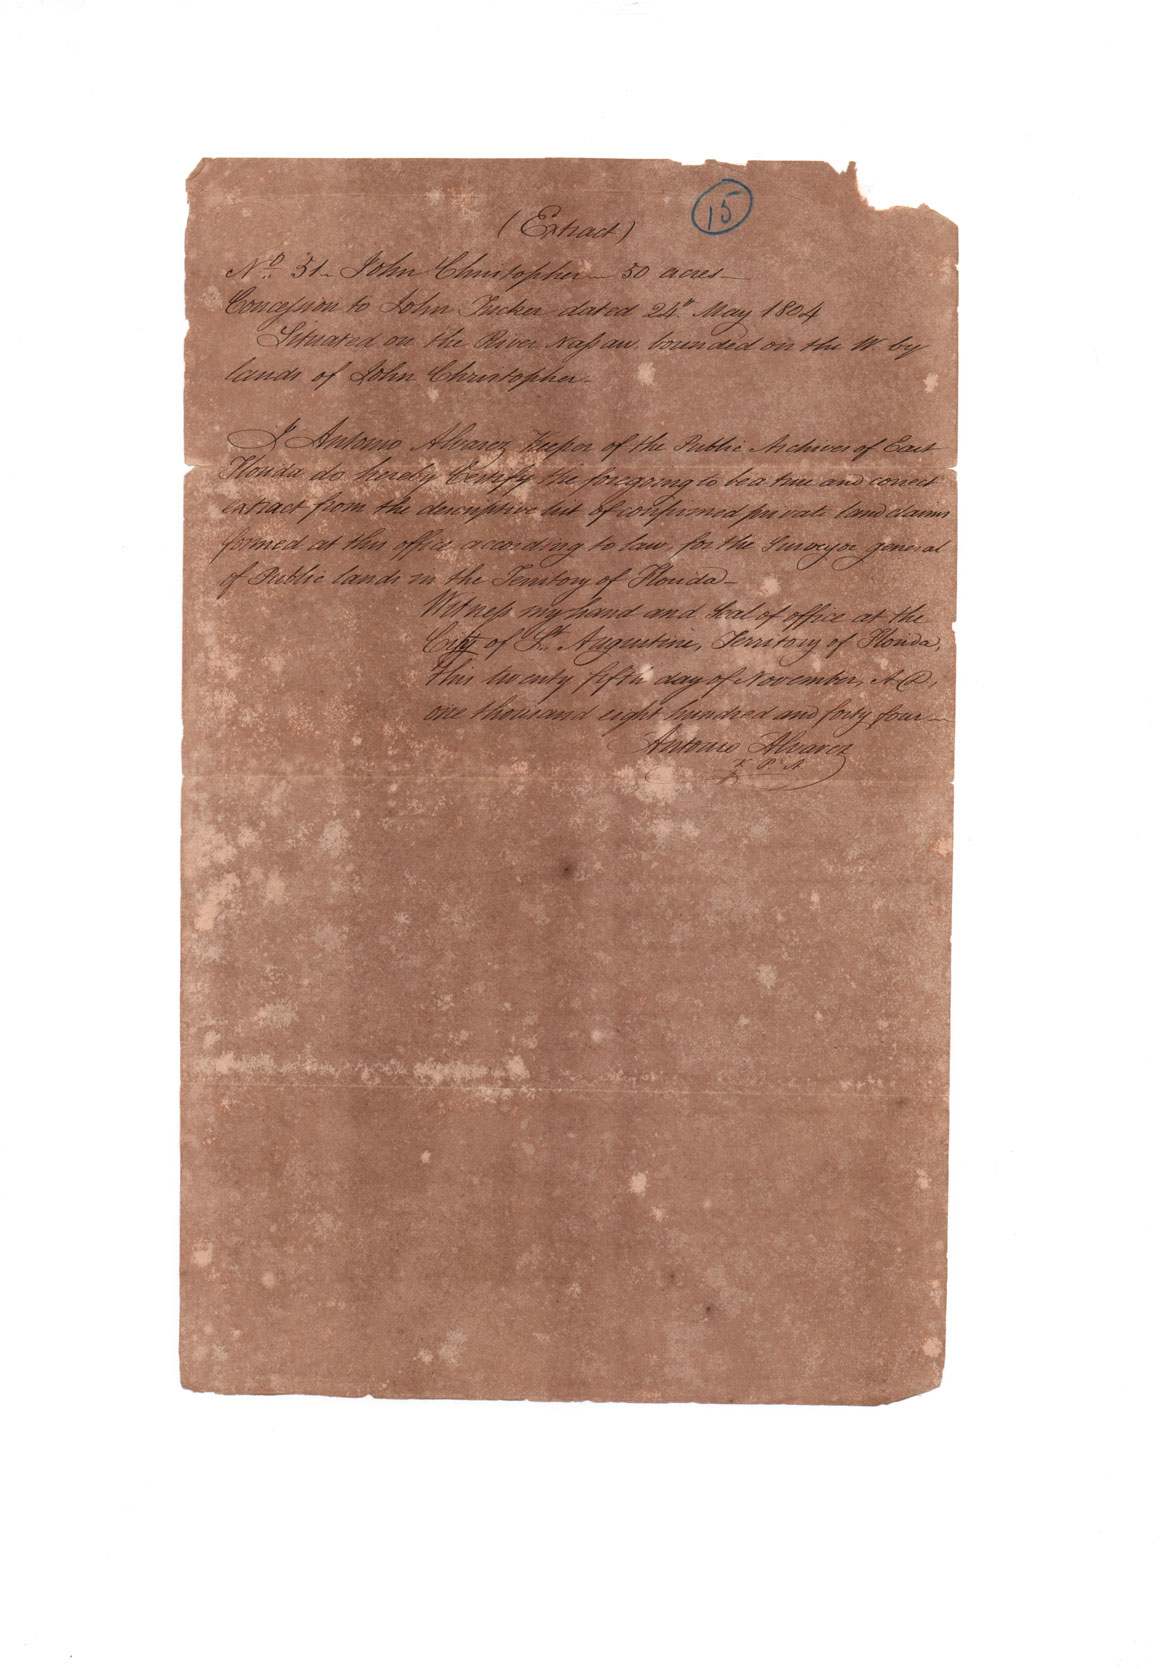 15
(Extract)
No. 51 – John Christopher – 50 acres –
Concession to John Tucker dated 24th May 1804
Situated on the River Nassau bounded on the W. by
lands of John Christopher –
I Antonio Alvarez Keeper of the Public Archives of East
Florida do hereby Certify the foregoing to be a true and correct
extract from the descriptive list of confirmed private land claims
formed at this office according to law, for the Surveyor general
of Public lands in the Territory of Florida –
Witness my hand and Seal of office at the
City of St. Augustine, Territory of Florida,
this twenty fifth day of November, A.D.
one thousand eight hundred and forty four –
Antonio Alvarez
K. P. A.